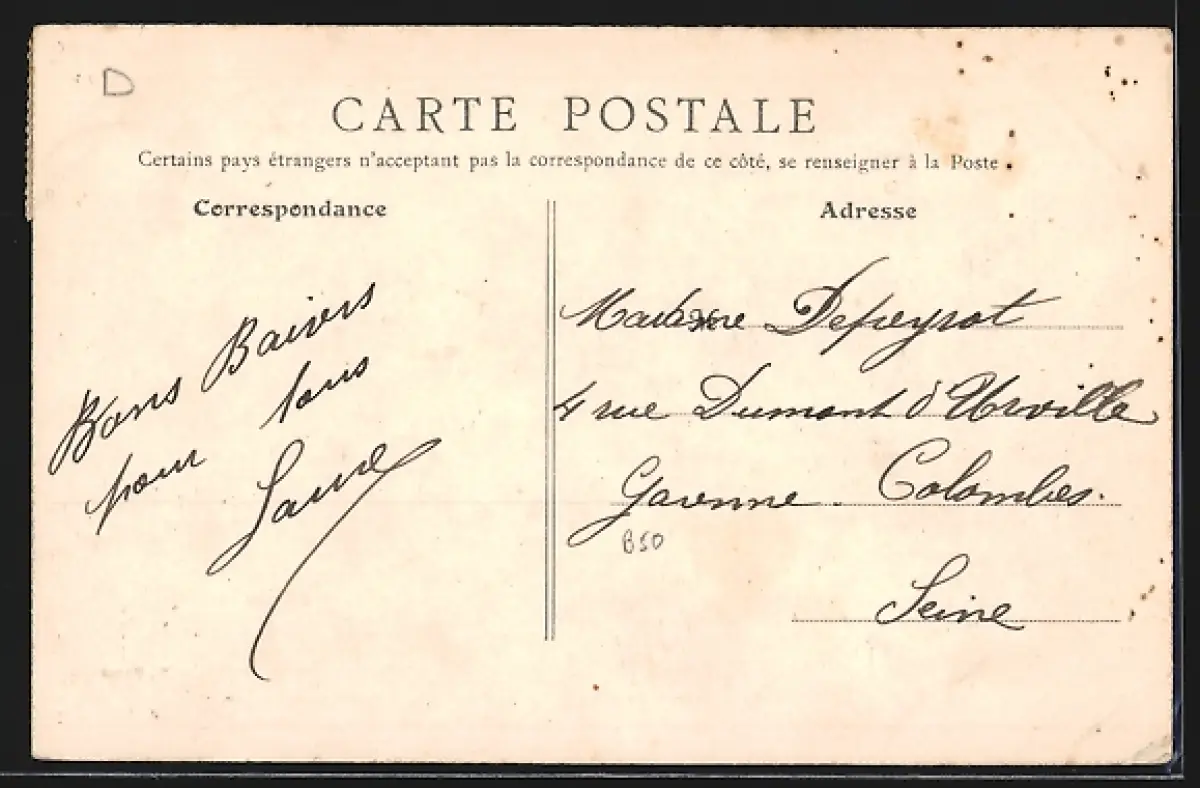 D
CARTE POSTALE
Certains pays étrangers n'acceptant pas la correspondance de ce côté, se renseigner à la Poste.
Correspondance
Bons Baisers
pour tous
Adresse
Madame Depeyrot
4 rue Dumont d'Urville
Garenne. Colombes.
B50
Seine